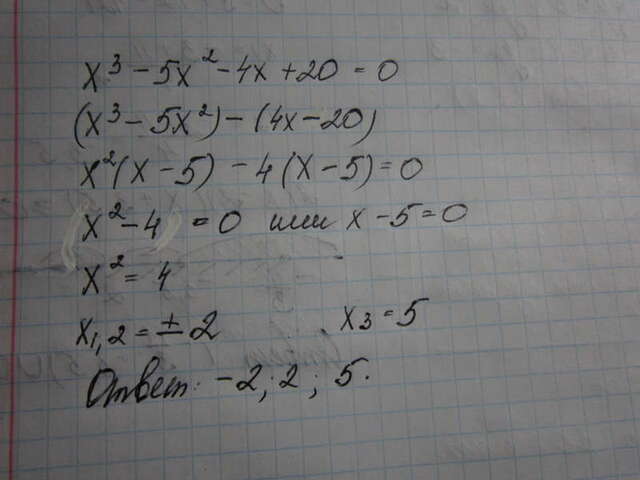 x³ - 5x² - 4x + 20 = 0
(x³ - 5x²) - (4x - 20)
x²(x - 5) - 4(x - 5) = 0
x² - 4 = 0 или x - 5 = 0
x² = 4
x₁,₂ = ± 2 x₃ = 5
Ответ: -2; 2; 5.